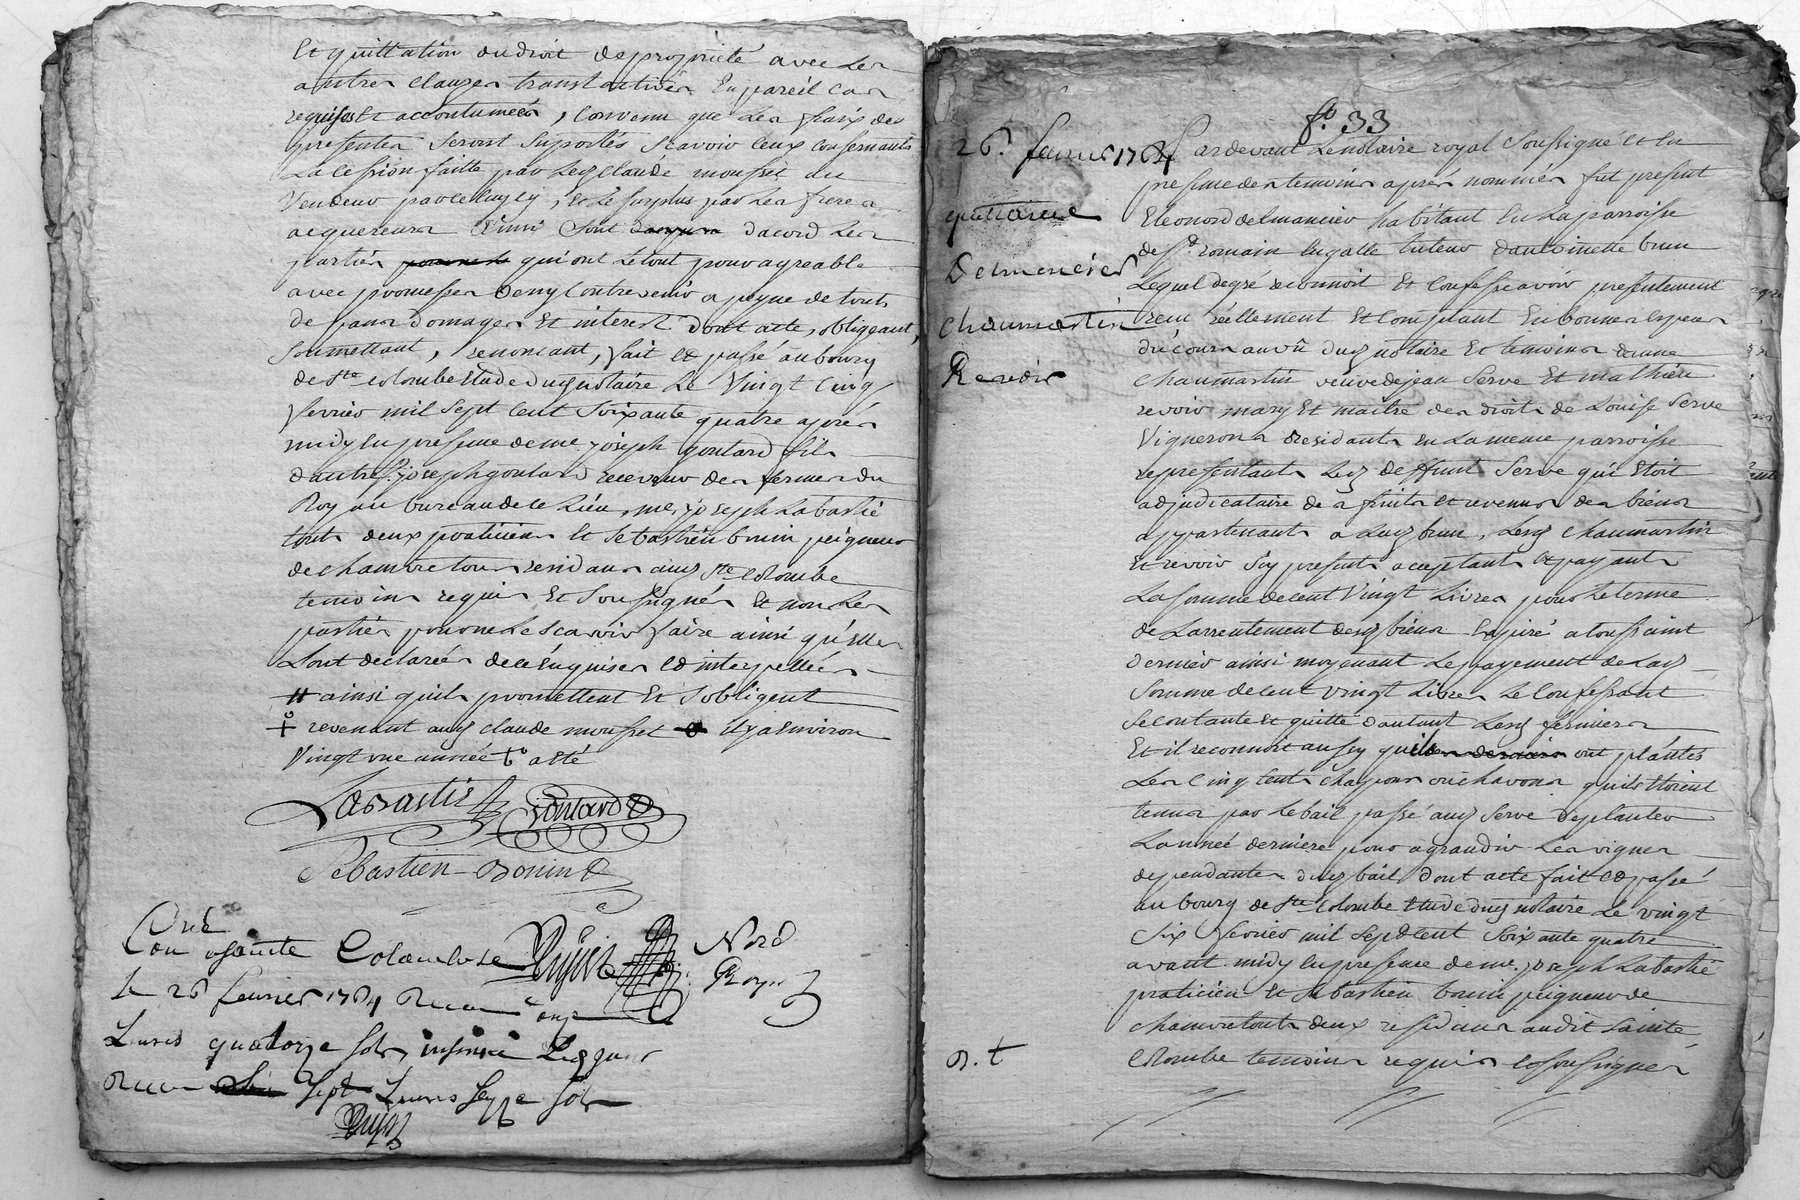 Et quittation du droit de propriété avec les
autres clauzes translatives En pareil cas
requises Et accoutumées, convenu que les fraix des
presentes seront suportés scavoir ceux consernants
La cession faitte par led claude mousset au
Vendeur par celluy cy, et le surplus par les freres
acquereurs Ainsi sont dacord les
parties qui ont le tout pour agreable
avec promesses de ny contrevenir a peyne de touts
depans domages Et interest Dont acte, obligeant,
soumettant, renoncant, fait et passé au bourg
de Ste colombe Etude dud notaire Le Vingt Cinq
fevrier mil sept cent soixante quatre apres
midy En presence de me joseph goutard fils
dautre Sr joseph goutard receveur des fermes du
Roy au bureau de ce Lieu, me joseph Labastie
touts deux praticiens Et sebastien bonin peigneur
de chanvre tous residans aud Ste colombe
temoins requis Et soussignés Et non les
parties pour ne le scavoir faire ainsi qu'elles
Lont declarées de ce Enquises et interpellées
# ainsi quils promettent Et s'obligent
+ revenant aud claude mousset il y a Environ
Vingt une année + acte
Labastie goutard
Sebastien Bonin
Con
a sainte Colombe Nore
Royal
le 26 fevrier 1764 Recu onze
Livres quatorze sols, insinué Led jour
Recu sept Livres seize sols
f.o 33
26.e fevrier 1764
quittance
Delmencier
chaumartin
Revoir
Par devant Le notaire royal soussigné et En
presence des temoins aprés nommés fut present
Eleonord delmancier habitant En La parroisse
de St romain Engalle tuteur dantoinette brun
Lequel degré reconnoit Et confesse avoir presentement
recu réellement Et comptant En bonnes especes
du cours au vû dud notaire Et temoins danne
chaumartin veuve de jean Serve Et mathieu
revoir mary Et maitre des droits de Louise Serve
Vignerons residants En la meme parroisse
representants Led deffunt Serve qui Etoit
adjudicataire des fruits et revenus des biens
appartenants a Lad brun, Lesd chaumartin
Et revoir icy presents acceptants Et payants
La somme de cent Vingt Livres pour le terme
de Larrentement desd biens Expiré a toussaint
dernier ainsi moyenant Le payement de Lad
somme de cent vingt Livres Le Confessant
se contante et quitte d'autant Lesd fermiers
Et il reconnoit aussy qu'ils ont plantés
Les cinq cents chapons ou chavons quils Etoient
tenus par Le bail passé aud Serve de planter
L'année derniere pour agrandir Les vignes
dependantes dud bail, dont acte fait et passé
au bourg de Ste Colombe Etude dud notaire Le vingt
six fevrier mil sept cent soixante quatre
avant midy En presence de me joseph Labastie
praticien Et sebastien bonin peigneur de
chanvre touts deux residans audit Sainte
Colombe temoins requis Et soussignés